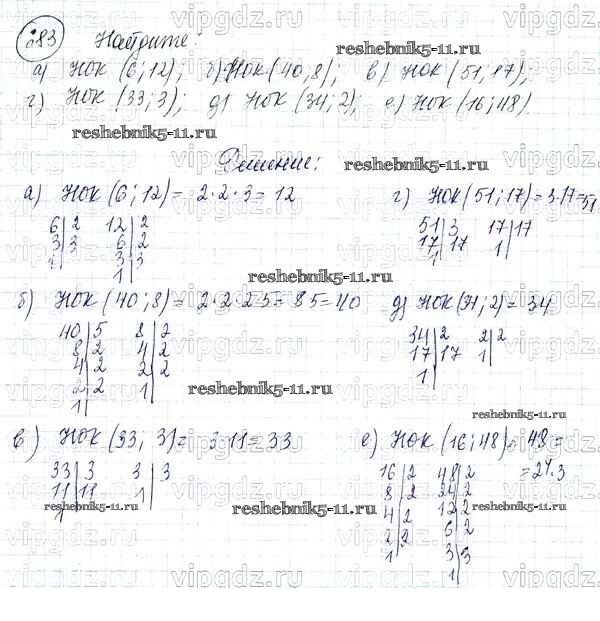 283 Найдите:
а) НОК (6; 12); б) НОК (40, 8); в) НОК (51; 17);
г) НОК (33; 3); д) НОК (34; 2); е) НОК (16; 48)
reshebnik5-11.ru
reshebnik5-11.ru
Решение:
reshebnik5-11.ru
а) НОК (6; 12) = 2·2·3 = 12
6|2 12|2
3|3 6|2
1| 3|3
1|
г) НОК (51; 17) = 3·17 = 51
51|3 17|17
17|17 1|
1|
reshebnik5-11.ru
reshebnik5-11.ru
б) НОК (40; 8) = 2·2·2·5 = 8·5 = 40
40|5 8|2
8|2 4|2
4|2 2|2
2|2 1|
1|
reshebnik5-11.ru
д) НОК (34; 2) = 34
34|2 2|2
17|17 1|
1|
reshebnik5-11.ru
в) НОК (33; 3) = 3·11 = 33
33|3 3|3
11|11 1|
1|
reshebnik5-11.ru
reshebnik5-11.ru
е) НОК (16; 48) = 48 =
= 2⁴·3
16|2 48|2
8|2 24|2
4|2 12|2
2|2 6|2
1| 3|3
1|
reshebnik5-11.ru
vipgdz.ru